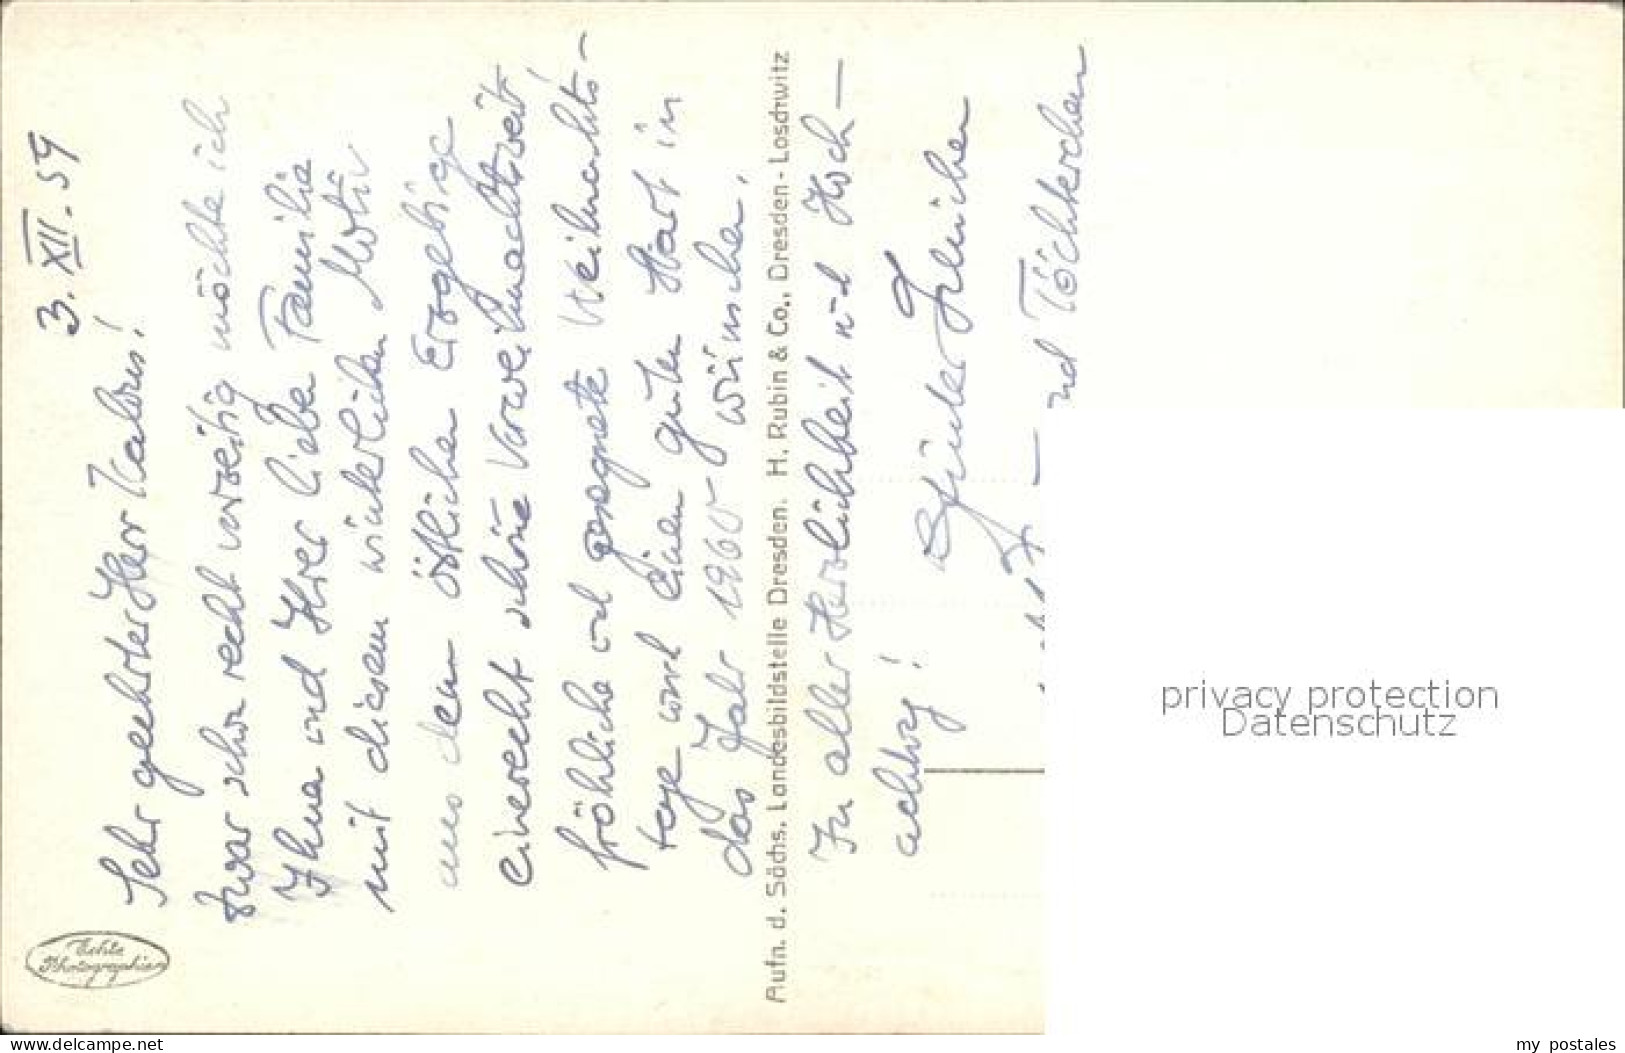 3. XII. 59
Sehr geehrter Herr
zwar schon recht vorzeitig möchte ich
Ihnen und Ihrer lieben Familie
mit diesem winterlichen Motiv
aus dem östlichen Erzgebirge
eine recht schöne Vorweihnachtszeit,
fröhliche und gesegnete Weihnachts-
tage und einen guten Start in
das Jahr 1960 wünschen.
Aufn. d. Sächs. Landesbildstelle Dresden. H. Rubin & Co., Dresden-Loschwitz
In aller Herzlichkeit und Hoch-
achtung!
Günter
und Töchterchen
Echte
Photographie
privacy protection
Datenschutz
www.delcampe.net
my_postales